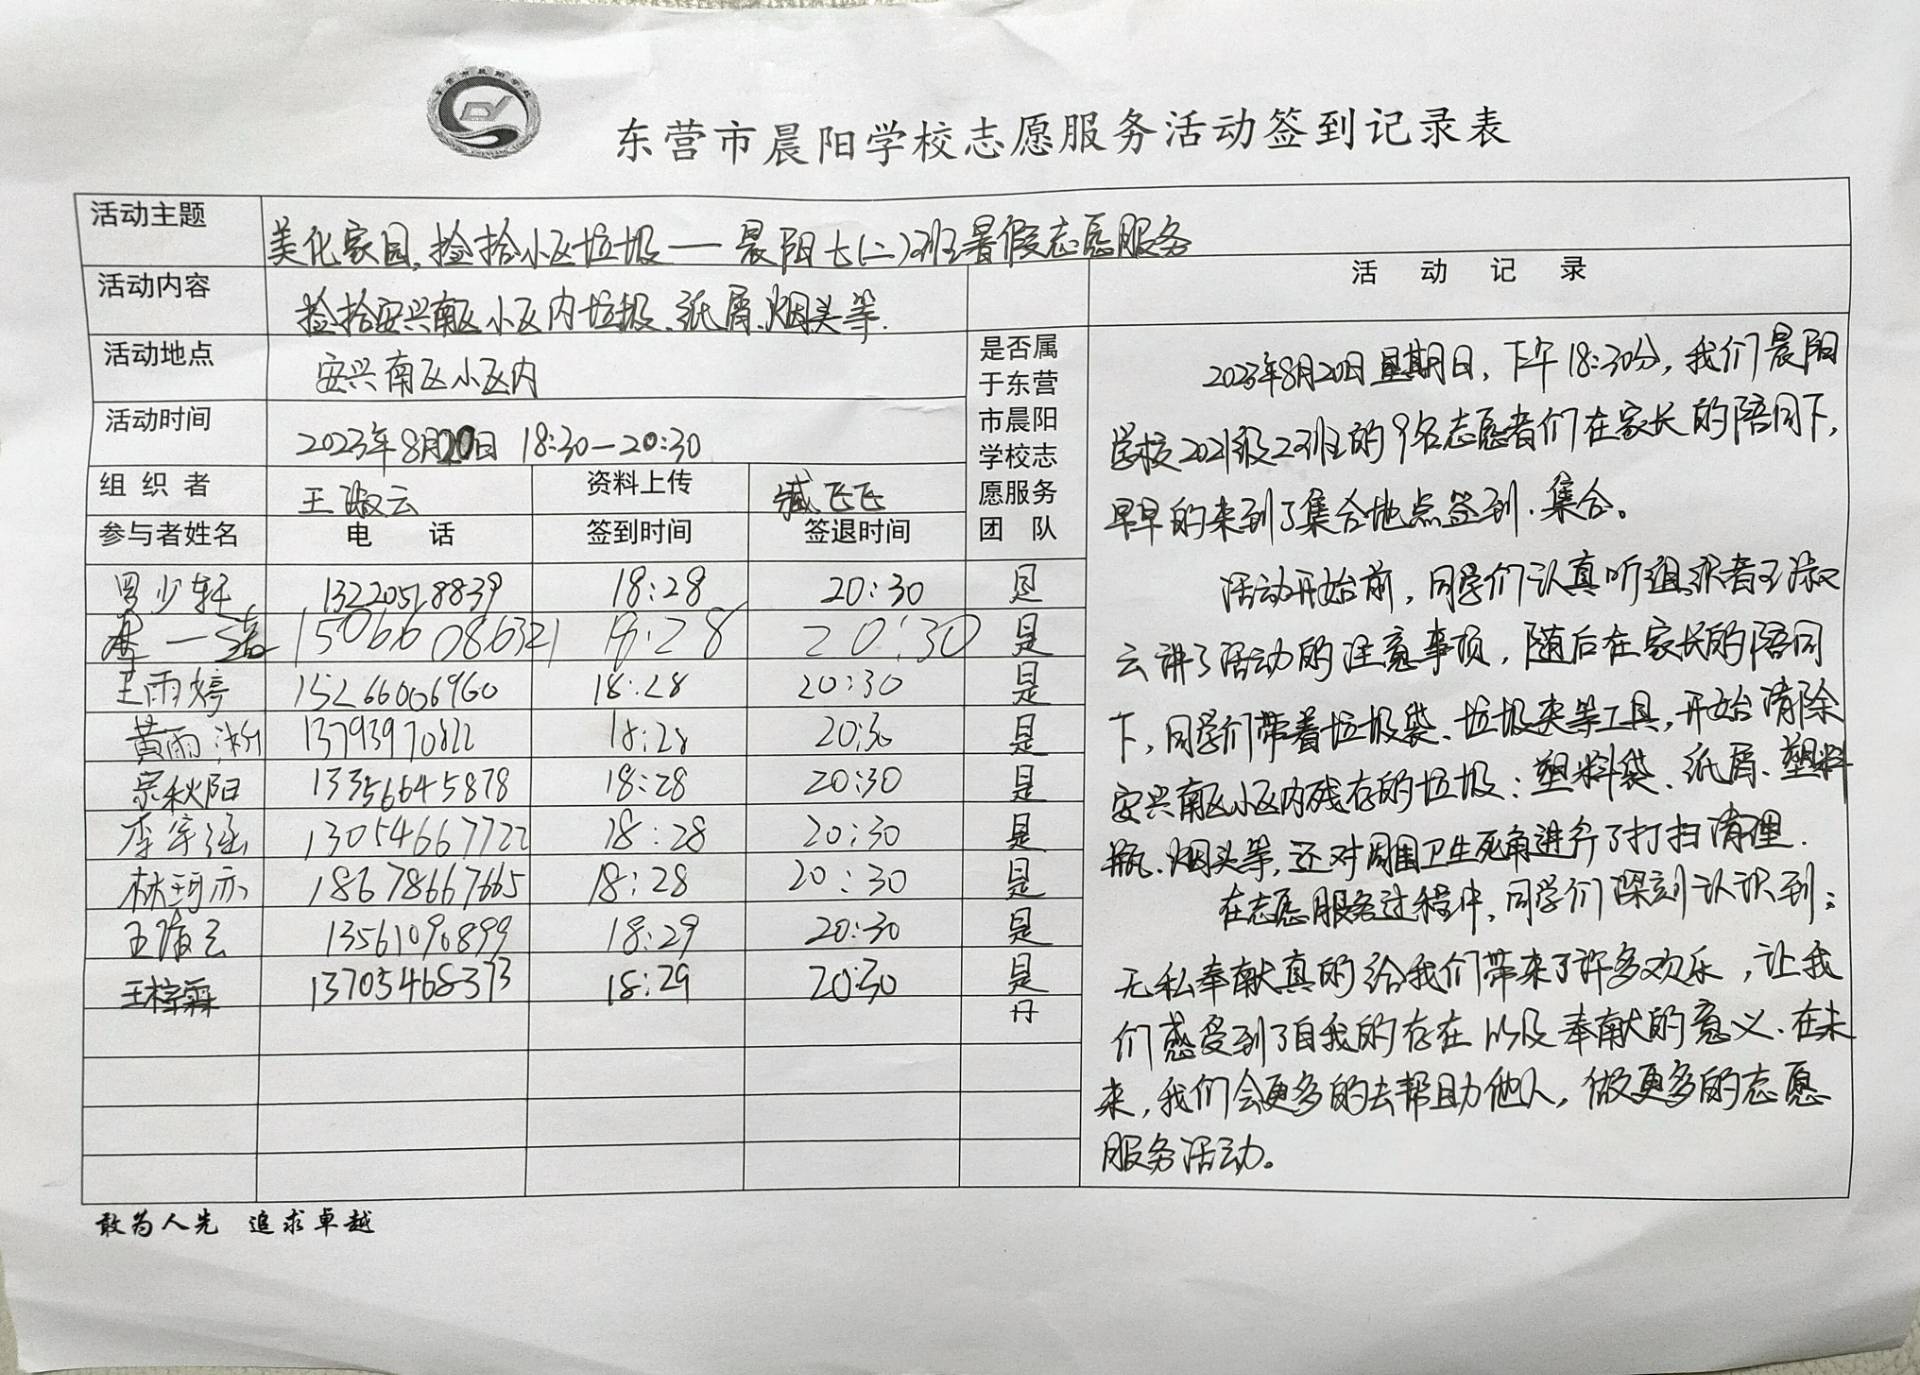 东营市晨阳学校志愿服务活动签到记录表
活动主题 美化家园,捡拾小区垃圾——晨阳七(二)班暑假志愿服务
活动内容 捡拾安兴南区小区内垃圾、纸屑、烟头等.
活动地点 安兴南区小区内
活动时间 2023年8月20日 18:30—20:30
组织者 王淑云 资料上传 臧飞飞
是否属于东营市晨阳学校志愿服务团队
参与者姓名 电 话 签到时间 签退时间
罗少轩 13220528839 18:28 20:30 是
一 15066086321 18:28 20:30 是
王雨婷 15266006960 18:28 20:30 是
黄雨 13793970822 18:28 20:30 是
宗秋阳 13356645878 18:28 20:30 是
李宇涵 13054667722 18:28 20:30 是
林珂亦 18678667665 18:28 20:30 是
王 13561090899 18:29 20:30 是
王梓霖 13705468373 18:29 20:30 是
活 动 记 录
2023年8月20日星期日,下午18:30分,我们晨阳
学校2021级2班的9名志愿者们在家长的陪同下,
早早的来到了集合地点签到.集合。
活动开始前,同学们认真听组织者王淑
云讲了活动的注意事项,随后在家长的陪同
下,同学们带着垃圾袋、垃圾夹等工具,开始清除
安兴南区小区内残存的垃圾:塑料袋、纸屑、塑料
瓶、烟头等,还对周围卫生死角进行了打扫清理.
在志愿服务过程中,同学们深刻认识到:
无私奉献真的给我们带来了许多欢乐,让我
们感受到了自我的存在以及奉献的意义.在未
来,我们会更多的去帮助他人,做更多的志愿
服务活动。
敢为人先 追求卓越